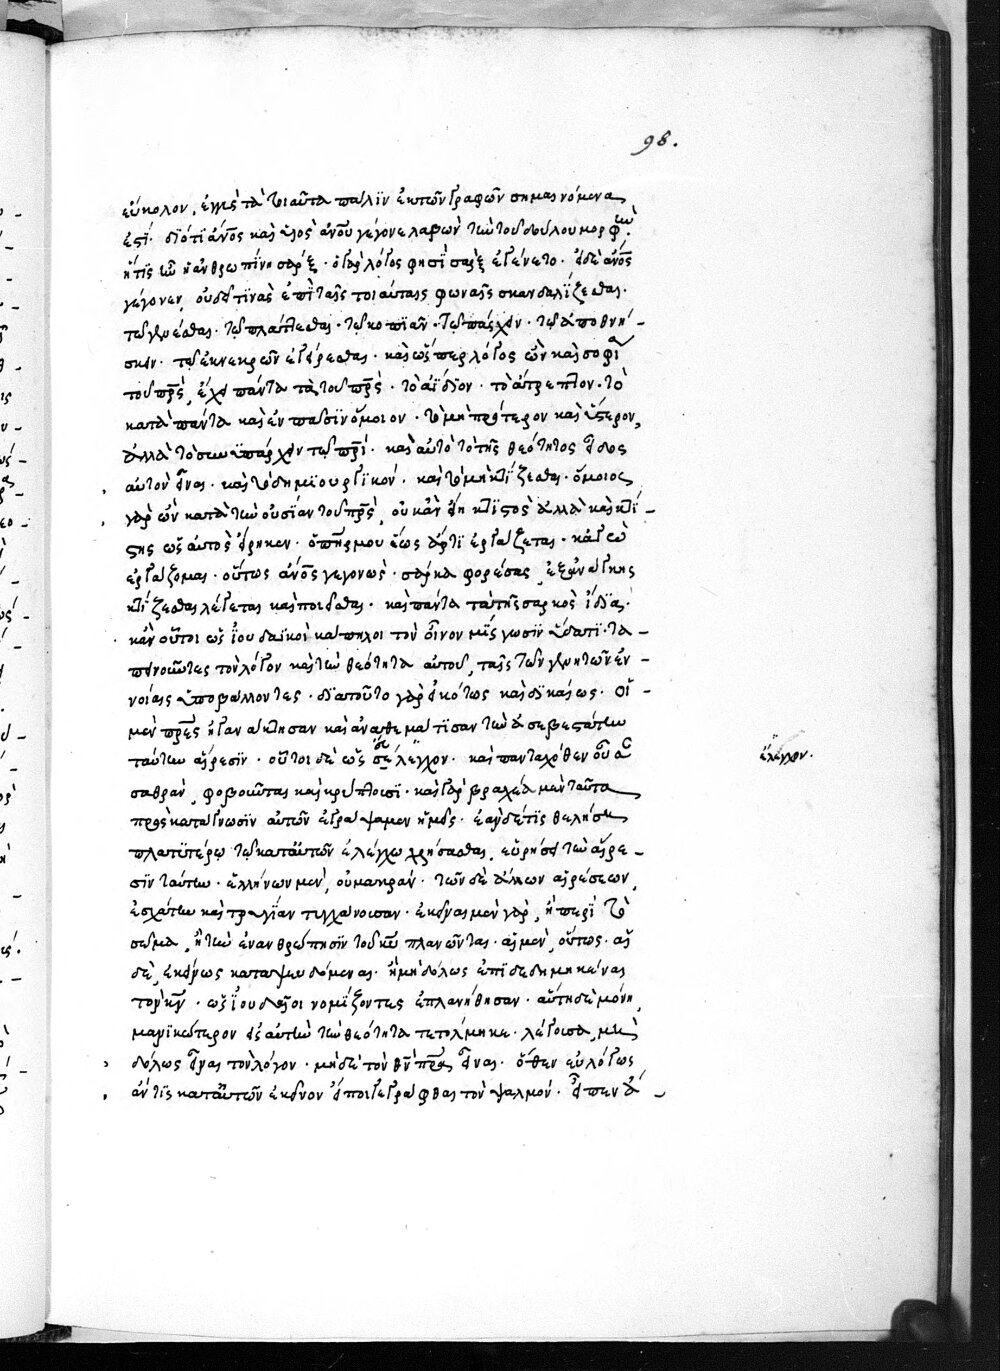 98.
εὔκολον, ἐγγὺς τὰ τοιαῦτα πάλϊν ἐκ τῶν γραφῶν σημαινόμενα
ἐστί· διότι ἄν̅ο̅ς καὶ υἱὸς ἀν̅ο̅υ γέγονε λαβὼν τὴν τοῦ δούλου μορφὴν·
ἥτις ἦν ἡ ἀνθρωπίνη σάρξ· ὁ γὰρ λόγος φησῒ σὰρξ ἐγένετο· εἰ δὲ ἄν̅ο̅ς
γέγονεν, οὐ δεῖ τϊνὰς ἐπῒ ταῖς τοιαύταις φωναῖς σκανδαλΐζεσθαι·
τῷ γενέσθαι· τῷ πλάττεσθαι· τῷ κοπϊᾶν· τῷ πάσχειν· τῷ ἀποθνή-
σκειν· τῷ ἐκ νεκρῶν ἐγείρεσθαι· καὶ ὥσπερ λόγος ὢν καὶ σοφία
τοῦ πρ̅ς, ἔχει πάντα τὰ τοῦ πρ̅ς· τὸ ἀΐδϊον· τὸ ἄτρεπτον· τὸ
κατὰ πάντα καὶ ἐν πᾶσϊν ὅμοιον· τὸ μὴ πρότερον καὶ ὕστερον,
ἀλλὰ τὸ συνϋπάρχειν τῷ πρ̅ι· καὶ αὐτὸ τὸ τῆς θεότητος εἶδος
αὐτὸν εἶναι· καὶ τὸ δημϊουργϊκόν· καὶ τὸ μὴ κτΐζεσθαι· ὅμοιος
γὰρ ὢν κατὰ τὴν οὐσίαν τοῦ πρ̅ς, οὐκ ἂν εἴη κτϊστὸς ἀλλὰ καὶ κτί-
στης ὡς αὐτὸς εἴρηκεν· ὁ πη̅ρ μου ἕως ἄρτϊ ἐργάζεται· κἀγὼ
ἐργάζομαι· οὕτως ἄν̅ο̅ς γεγονὼς· σάρκα φορέσας, ἐξ ἀνάγκης
κτΐζεσθαι λέγεται καὶ ποιεῖσθαι· καὶ πάντα τὰ τῆς σαρκὸς ἴδϊα·
κἂν οὗτοι ὡς ΐουδαϊκοὶ κάπηλοι τὸν οἶνον μΐσγωσϊν ὕδατϊ· τα-
πεινοῦντες τὸν λόγον καὶ τὴν θεότητα αὐτοῦ, ταῖς τῶν γενητῶν ἐν-
νοίαις ὑποβάλλοντες· δϊὰ τοῦτο γὰρ εἰκότως καὶ δϊκαίως· οἱ-
μὲν πρ̅ες ἠγανάκτησαν καὶ ἀνεθεμάτισαν τὴν ἀσεβεστάτην
ταύτην αἵρεσϊν· οὗτοι δὲ ὡς εὐέλεγχον· καὶ πανταχόθεν οὖσαν
σαθρὰν, φοβοῦνται καὶ κρύπτουσϊ· καὶ γὰρ βραχέα μὲν ταῦτα
πρὸς κατάγνωσϊν αὐτῶν ἐγράψαμεν ἡμεῖς· ἐὰν δέ τϊς θελήσει
πλατϋτέρῳ τῷ κατ' αὐτῶν ἐλέγχω χρήσασθαι, εὑρήσει τὴν αἵρε-
σϊν ταύτην· ἑλλήνων μὲν, οὐ μακράν· τῶν δὲ ἄλλων αἱρέσεων,
ἐσχάτην καὶ τρυγίαν τυγχάνουσαν· ἐκεῖναι μὲν γὰρ, ἢ περὶ τὸ
σῶμα, ἢ τὴν ἐνανθρώπησϊν τοῦ κ̅υ πλανῶνται· αἱ μὲν, οὕτως· αἱ
δὲ, ἐκείνως καταψευδόμεναι· ἢ μὴ δόλως ἐπϊδεδημηκέναι
τὸν κ̅ν· ὡς ΐουδαῖοι νομΐζοντες ἐπλανήθησαν· αὕτη δὲ μόνη,
μανϊκώτερον εἰς αὐτὴν τὴν θεότητα τετόλμηκε· λέγουσα, μὴ
δόλως εἶναι τὸν λόγον· μηδὲ τὸν θ̅ν̅ πρ̅α εἶναι· ὅθεν εὐλόγως
ἄν τϊς κατ' αὐτῶν ἐκεῖνον εἴποι γεγράφθαι τὸν ψαλμόν· εἶπεν ἄ-
ἔλεγχον·